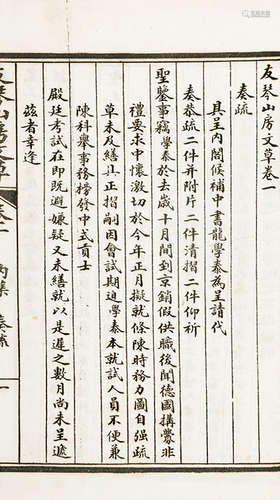 友琴山房文草卷一
奏疏
具呈內閣候補中書龍學泰為呈請代
奏恭疏二件并附片二件清摺二件仰祈
聖鑒事竊學泰於去歲十月間到京銷假供職後聞德國搆釁非
禮要求中懷激切於今年正月擬就條陳時務力圖自強疏
草未及繕真正摺嗣因會試期迫學泰本就試人員不便兼
陳科舉事務榜發中式貢士
殿廷考試在即既避嫌疑又未繕就以是遲之數月尚未呈遞
茲者幸逢
友琴山房文草
卷一
內集
奏疏
一